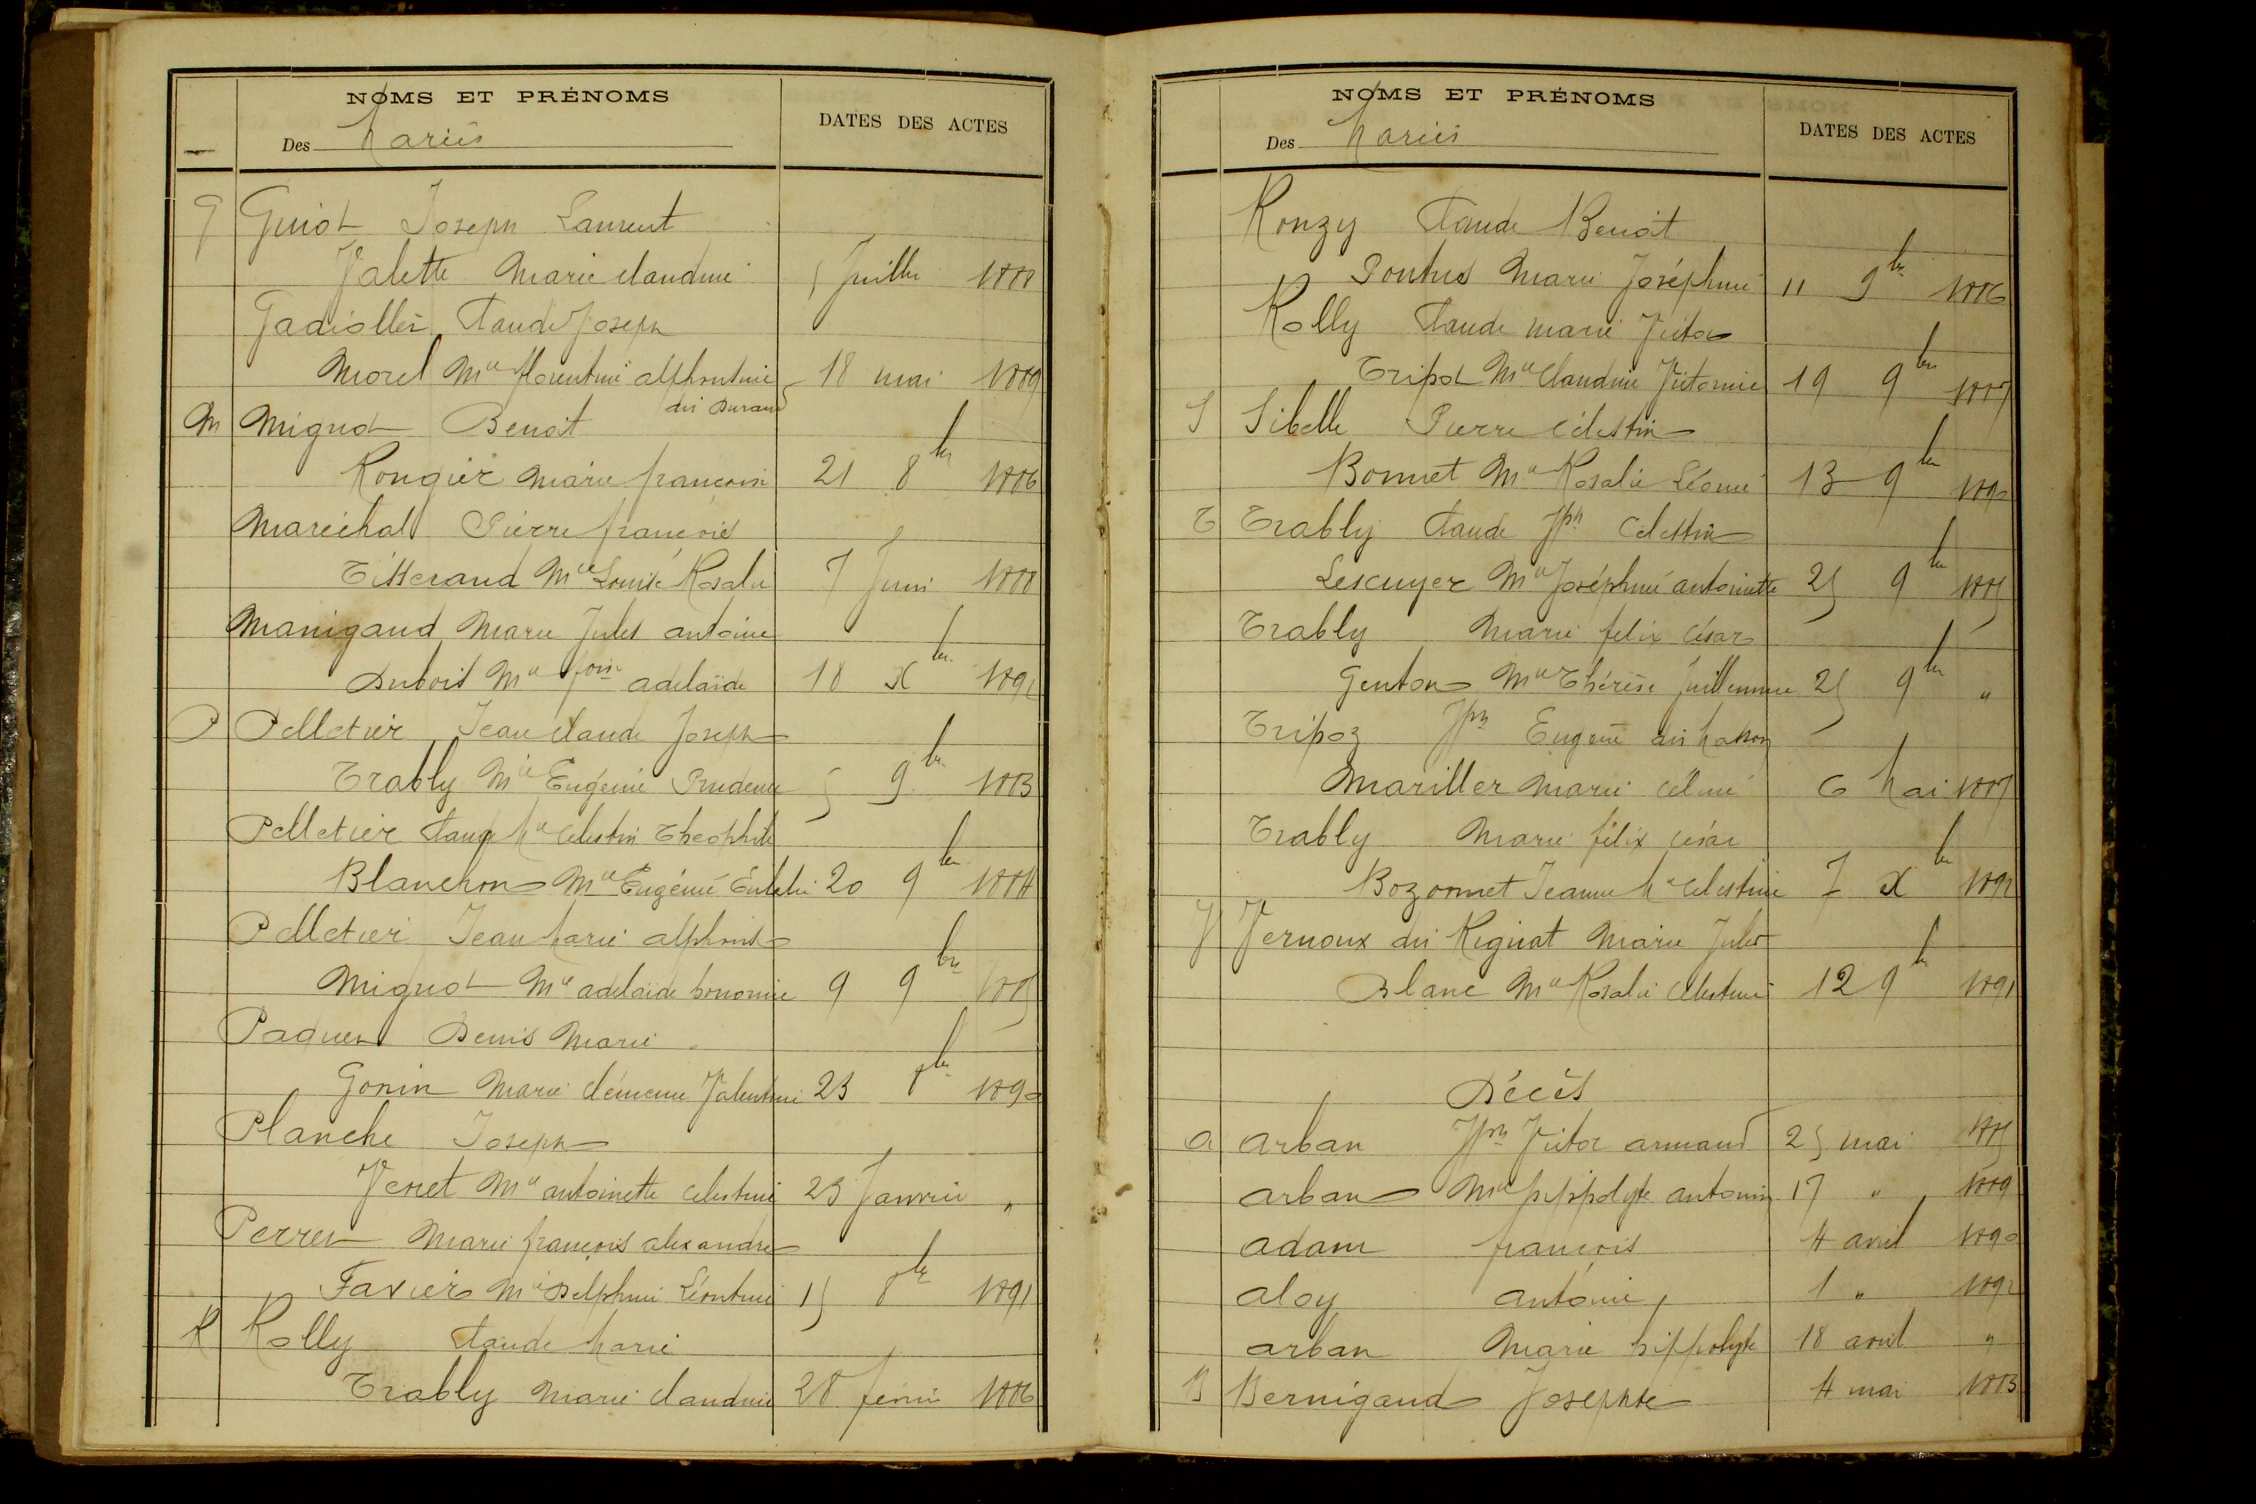 NOMS ET PRÉNOMS
Des Mariés
DATES DES ACTES
G Guiot Joseph Laurent
Valette Marie Claudine 5 Juillet 1888
Gadiollet Claude Joseph
Morel Mie florentine alphontine 18 mai 1889
dit Durand
M Mignot Benoit
Rougier Marie françoise 21 8bre 1886
Maréchal Pierre françois
Tisserand Mie Louise Rosalie 7 Juin 1888
Manigand Marie Jules antoine
Dubois Mie foise adelaïde 18 Xbre 1892
P Pelletier Jean Claude Joseph
Trably Mie Eugénie Prudence 5 9bre 1883
Pelletier Claude Mie Celestin Théophile
Blanchon Mie Eugénie Eulalie 20 9bre 1884
Pelletier Jean Marie alphonse
Mignot Mie adelaïde honorine 9 9bre 1885
Paquet Denis Marie
Gonin Marie Clémence Valentine 23 8bre 1890
Planche Joseph
Verret Mie antoinette Celestine 23 Janvier "
Perret Marie françois alexandre
Favier Mie Delphine Léontine 15 8bre 1891
R Rolly Claude Marie
Trably Marie Claudine 28 février 1886
NOMS ET PRÉNOMS
Des Mariés
DATES DES ACTES
Ronzy Claude Benoit
Pontus Marie Joséphine 11 9bre 1886
Rolly Claude Marie Victor
Tripot Mie Claudine Victorine 19 9bre 1887
S Sibelle Pierre Célestin
Bonnet Mie Rosalie Léonie 13 9bre 1890
T Trably Claude Jph Celestin
Lescuyer Mie Joséphine antoinette 25 9bre 1885
Trably Marie felix César
Genton Mie Thérèse Guillemine 25 9bre "
Tripoz Jph Eugène dit
Mariller Marie Céline 6 Mai 1887
Trably Marie félix César
Bozonnet Jeanne Mie Celestine 7 Xbre 1892
V Vernoux dit Regnat Marie Jules
Blanc Mie Rosalie Celestine 12 9bre 1891
Décès
a arban Jph Victor armand 25 mai 1885
arban Mie hippolyte antonin 17 " 1889
adam françois 4 avril 1890
aloy antoine 1 " 1892
arban Marie hippolyte 18 avril "
B Bernigaud Josephte 4 mai 1883